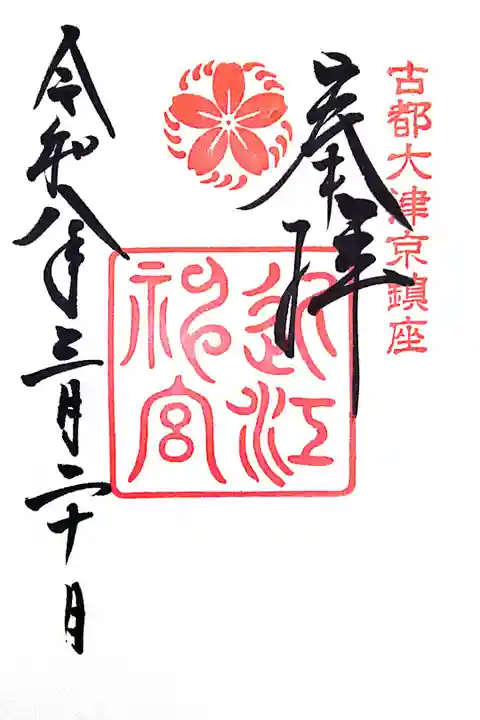 古都大津京鎮座
奉拝
近江
神宮
令和八年三月二十日